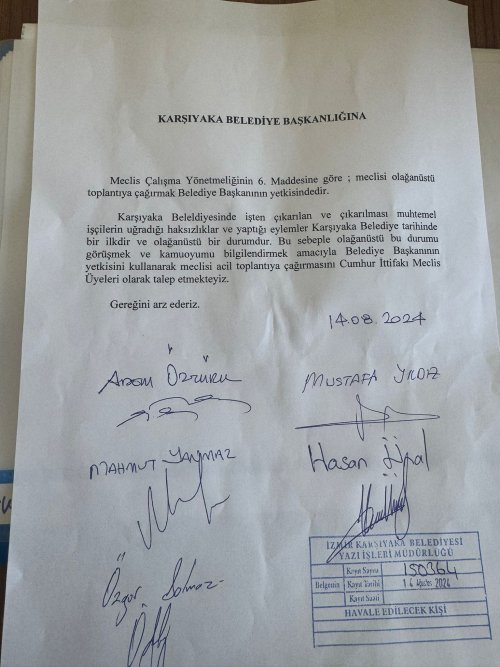 KARŞIYAKA BELEDİYE BAŞKANLIĞINA
Meclis Çalışma Yönetmeliğinin 6. Maddesine göre ; meclisi olağanüstü
toplantıya çağırmak Belediye Başkanının yetkisindedir.
Karşıyaka Beleldiyesinde işten çıkarılan ve çıkarılması muhtemel
işçilerin uğradığı haksızlıklar ve yaptığı eylemler Karşıyaka Belediye tarihinde
bir ilkdir ve olağanüstü bir durumdur. Bu sebeple olağanüstü bu durumu
görüşmek ve kamuoyumu bilgilendirmek amacıyla Belediye Başkanının
yetkisini kullanarak meclisi acil toplantıya çağırmasını Cumhur İttifakı Meclis
Üyeleri olarak talep etmekteyiz.
Gereğini arz ederiz.
14.08.2024
ÖZTÜRK
MUSTAFA YILDIZ
MAHMUT YANMAZ
Hasan Ünal
Özgür Solmaz
İZMİR KARŞIYAKA BELEDİYESİ
YAZI İŞLERİ MÜDÜRLÜĞÜ
Belgenin
Kayıt Sayısı 150364
Kayıt Tarihi 14 Ağustos 2024
Kayıt Saati
HAVALE EDİLECEK KİŞİ